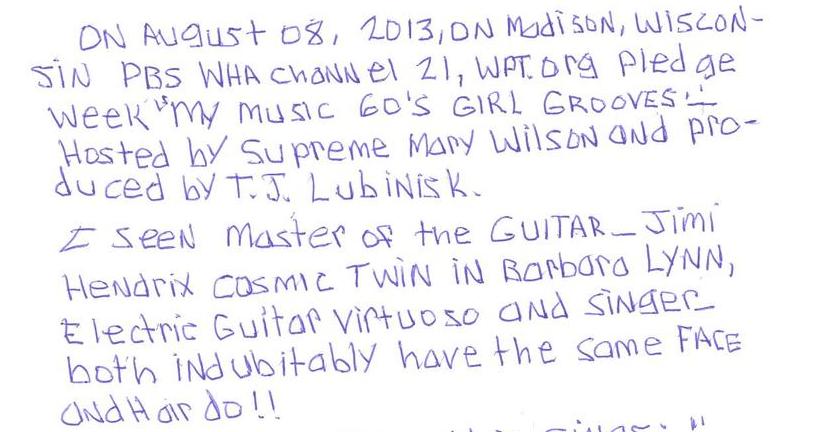 ON August 08, 2013, ON Madison, WISCON-
SIN PBS WHA channel 21, WPT.org Pledge
Week "MY MUSIC 60'S GIRL GROOVES!"
Hosted by Supreme Mary Wilson and pro-
duced by T.J. LubiNisk.
I SEEN Master of the GUITAR_Jimi
Hendrix COSMIC TWIN IN Barbara LYNN,
Electric Guitar Virtuoso and Singer_
both indubitably have the same FACE
and Hair do!!